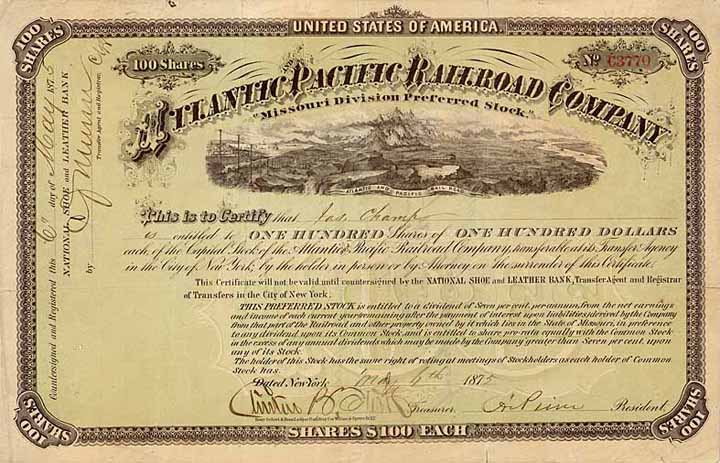 100 SHARES
UNITED STATES OF AMERICA.
100 SHARES
100 Shares
No C3770
THE ATLANTIC AND PACIFIC RAILROAD COMPANY
"Missouri Division Preferred Stock."
ATLANTIC AND PACIFIC RAIL ROAD
This is to Certify that Jas. Champ
is entitled to ONE HUNDRED Shares of ONE HUNDRED DOLLARS
each, of the Capital Stock of the Atlantic & Pacific Railroad Company, transferable at its Transfer Agency
in the City of New York, by the holder in person or by Attorney on the surrender of this Certificate.
This Certificate will not be valid until countersigned by the NATIONAL SHOE and LEATHER BANK, Transfer Agent and Registrar
of Transfers in the City of New York.
THIS PREFERRED STOCK is entitled to a dividend of Seven per cent. per annum, from the net earnings
and income of each current year remaining after the payment of interest upon liabilities derived by the Company
from that part of the Railroad and other property owned by it which lies in the State of Missouri, in preference
to any dividend upon its Common Stock, and is entitled to share pro rata equally with the Common Stock
in the excess of any annual dividends which may be made by the Company greater than Seven per cent. upon
any of its Stock.
The holder of this Stock has the same right of voting at meetings of Stockholders as each holder of Common
Stock has.
Dated New York May 6th 1875
Treasurer.
President.
100 SHARES
SHARES $100 EACH.
100 SHARES
Countersigned and Registered this 6th day of May 1875
NATIONAL SHOE and LEATHER BANK
by
Transfer Agent and Registrar.